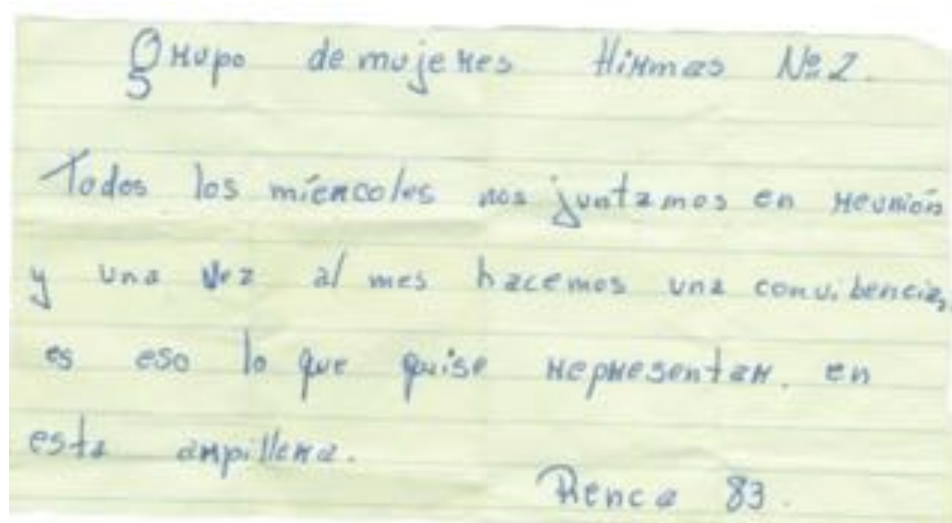 Grupo de mujeres Hirmas Nº 2.
Todos los miércoles nos juntamos en reunión
y una vez al mes hacemos una convibencia,
es eso lo que quise representar. en
esta arpillera.
Renca 83.